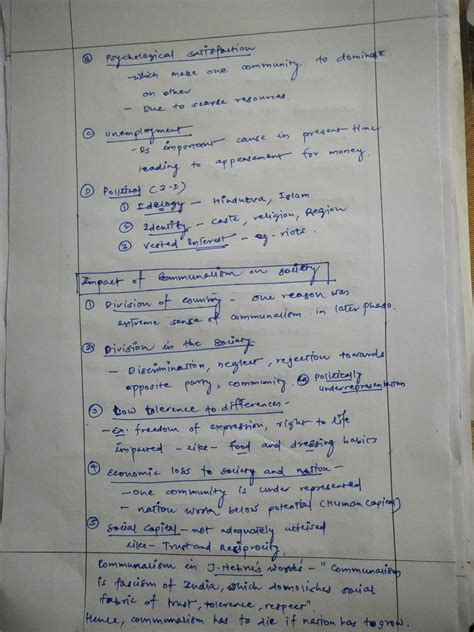 Ⓑ Psychological satisfaction
- which make one community to dominate
on other
- Due to scarse resources.
Ⓒ Unemployment
- Is important cause in present time
leading to appeasement for money.
Ⓓ Political (3-I)
① Ideology - Hindutva, Islam
② Identity - caste, religion, Region
③ Vested Interest - eg - riots.
Impact of Communalism on society
① Division of country - one reason was
extreme sense of communalism in later phase.
② Division in the society
- Discrimination, neglect, rejection towards
opposite party, community. Politically
underrepresentation
③ Low tolerence to differences -
- Ex: freedom of expression, right to life
impacted - like - food and dressing habits
④ Economic loss to society and nation -
- one community is under represented
- nation work below potential (Human Capital)
⑤ Social Capital - not adequately utilised
like - Trust and Reciprocity.
Communalism in J. Nehru's words - "Communalism
is fascism of India, which domolishes social
fabric of trust, tolerence, respect".
Hence, communalism has to die if nation has to grow.